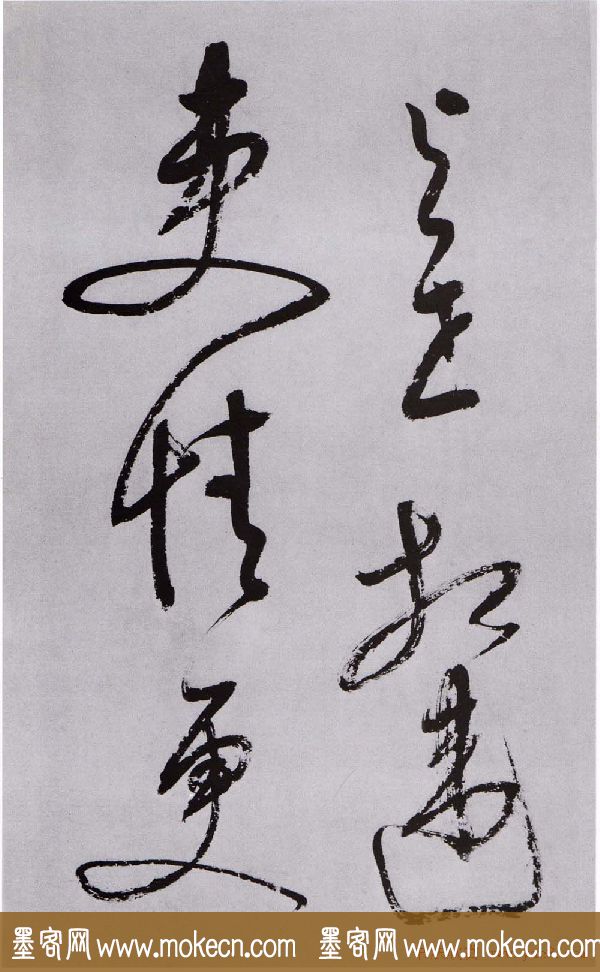 与世相違
吏情更
墨客网 www.mokecn.com 墨客网 www.mokecn.com